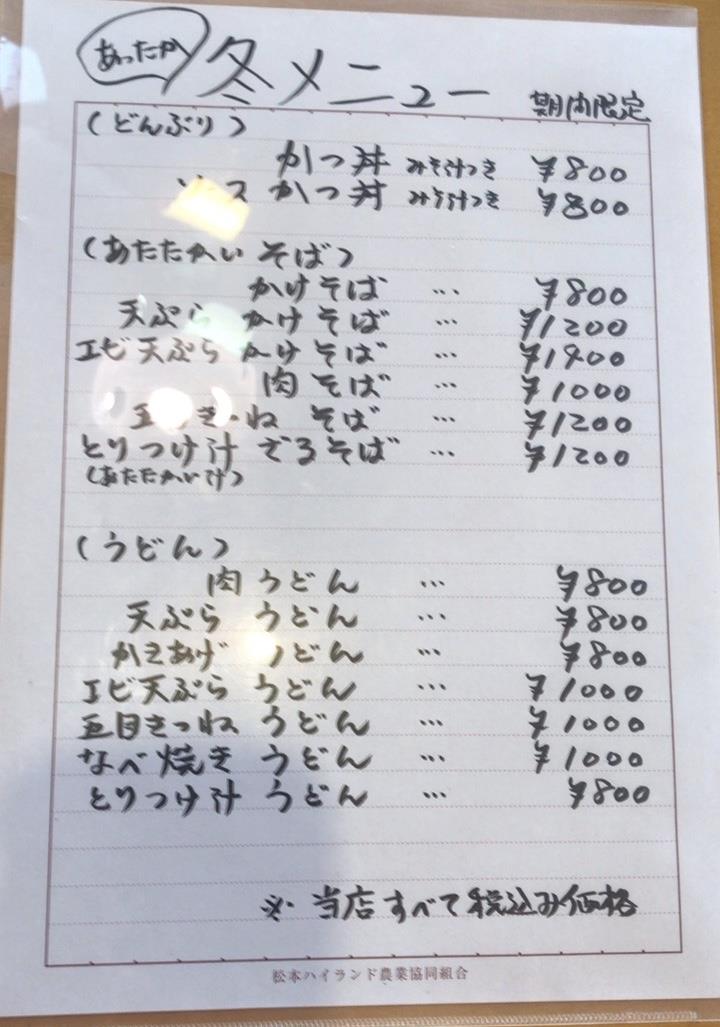 あったか 冬メニュー 期間限定
(どんぶり)
かつ丼 みそ汁つき ¥800
ソースかつ丼 みそ汁つき ¥800
(あたたかい そば)
かけそば … ¥800
天ぷら かけそば … ¥1200
エビ天ぷら かけそば … ¥1400
肉そば … ¥1000
五目きつね そば … ¥1200
とりつけ汁 ざるそば … ¥1200
(あたたかい汁)
(うどん)
肉うどん … ¥800
天ぷら うどん … ¥800
かきあげ うどん … ¥800
エビ天ぷら うどん … ¥1000
五目きつね うどん … ¥1000
なべ焼き うどん … ¥1000
とりつけ汁 うどん … ¥800
※ 当店すべて税込み価格
松本ハイランド農業協同組合